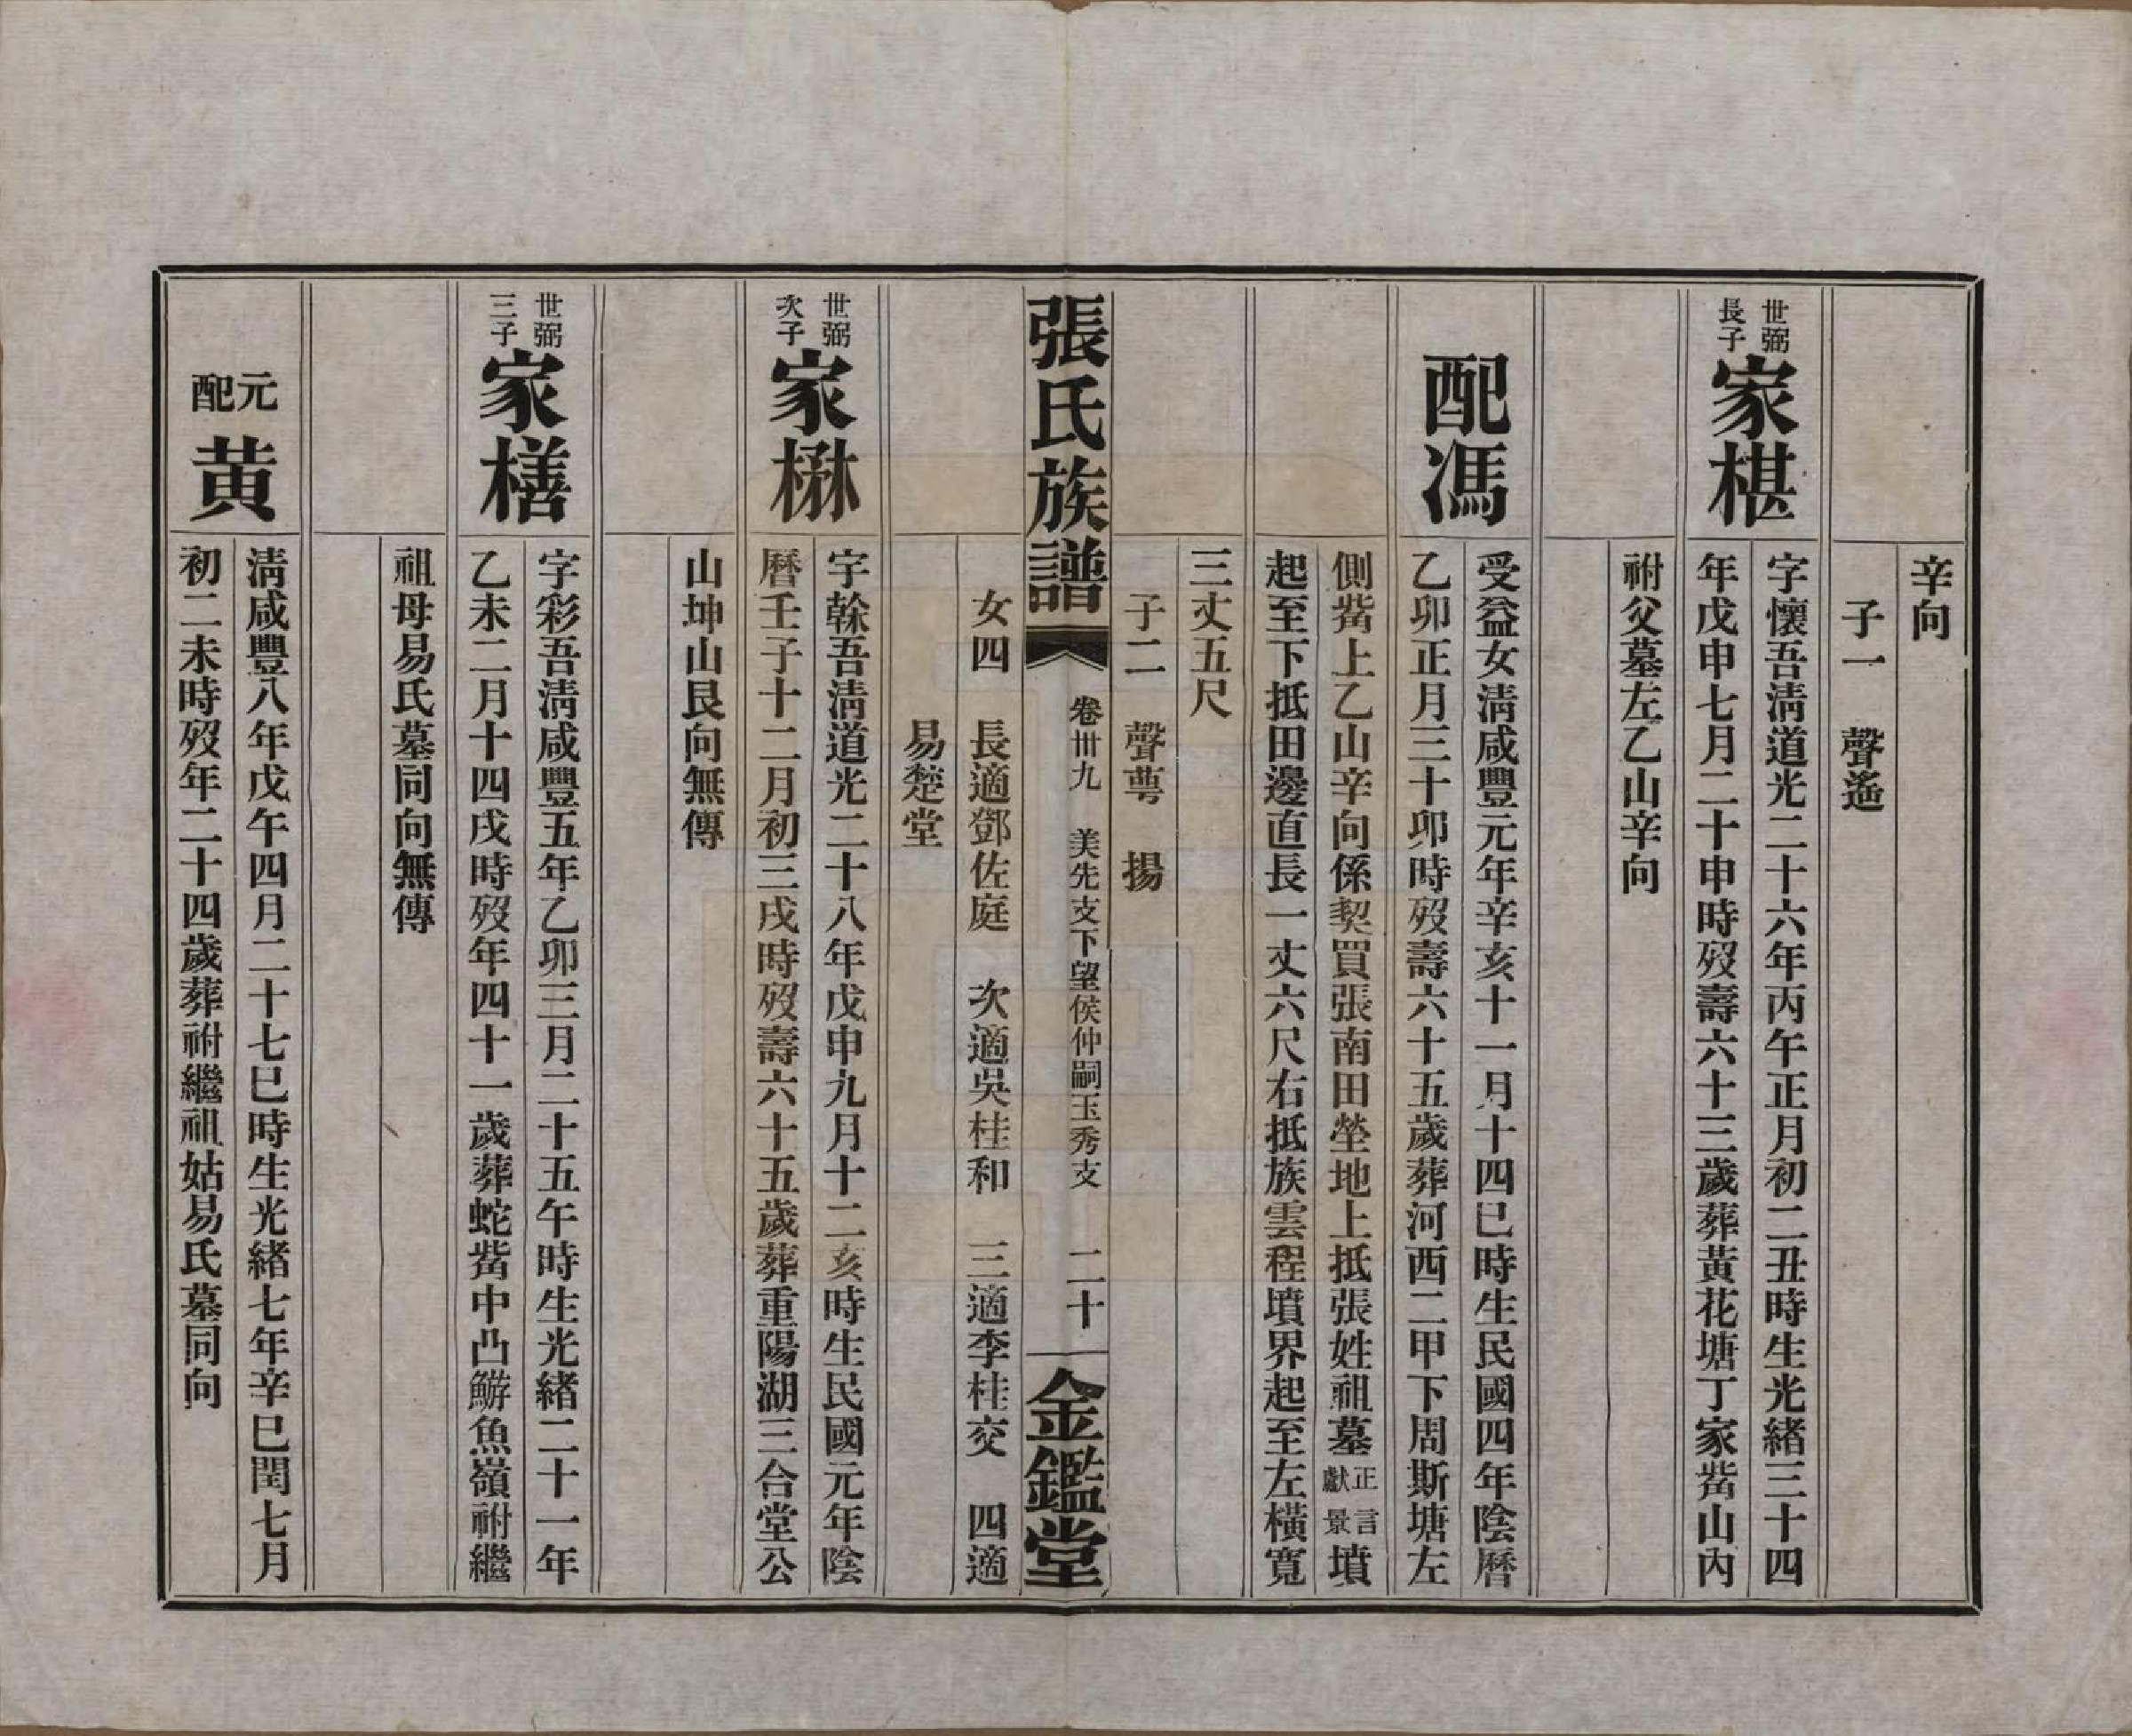 辛向
子一　聲遙
世弼長子
家椹
字懷吾清道光二十六年丙午正月初二丑時生光緒三十四
年戊申七月二十申時歿壽六十三歲葬黃花塘丁家嵴山內
祔父墓左乙山辛向
配馮
受益女清咸豐元年辛亥十一月十四巳時生民國四年陰曆
乙卯正月三十卯時歿壽六十五歲葬河西二甲下周斯塘左
側嵴上乙山辛向係契買張南田塋地上抵張姓祖墓正言獻景墳
起至下抵田邊直長一丈六尺右抵族雲程墳界起至左橫寬
三丈五尺
子二　聲蕚　揚
張氏族譜　卷卅九　美先支下望侯仲嗣玉秀支　二十　金鑑堂
女四　長適鄧佐庭　次適吳桂和　三適李桂交　四適
易楚堂
世弼次子
家楙
字榦吾清道光二十八年戊申九月十二亥時生民國元年陰
曆壬子十二月初三戌時歿壽六十五歲葬重陽湖三合堂公
山坤山艮向無傳
世弼三子
家橏
字彩吾清咸豐五年乙卯三月二十五午時生光緒二十一年
乙未二月十四戌時歿年四十一歲葬蛇嵴中凸鰤魚嶺祔繼
祖母易氏墓同向無傳
元配
黃
清咸豐八年戊午四月二十七巳時生光緒七年辛巳閏七月
初二未時歿年二十四歲葬祔繼祖姑易氏墓同向